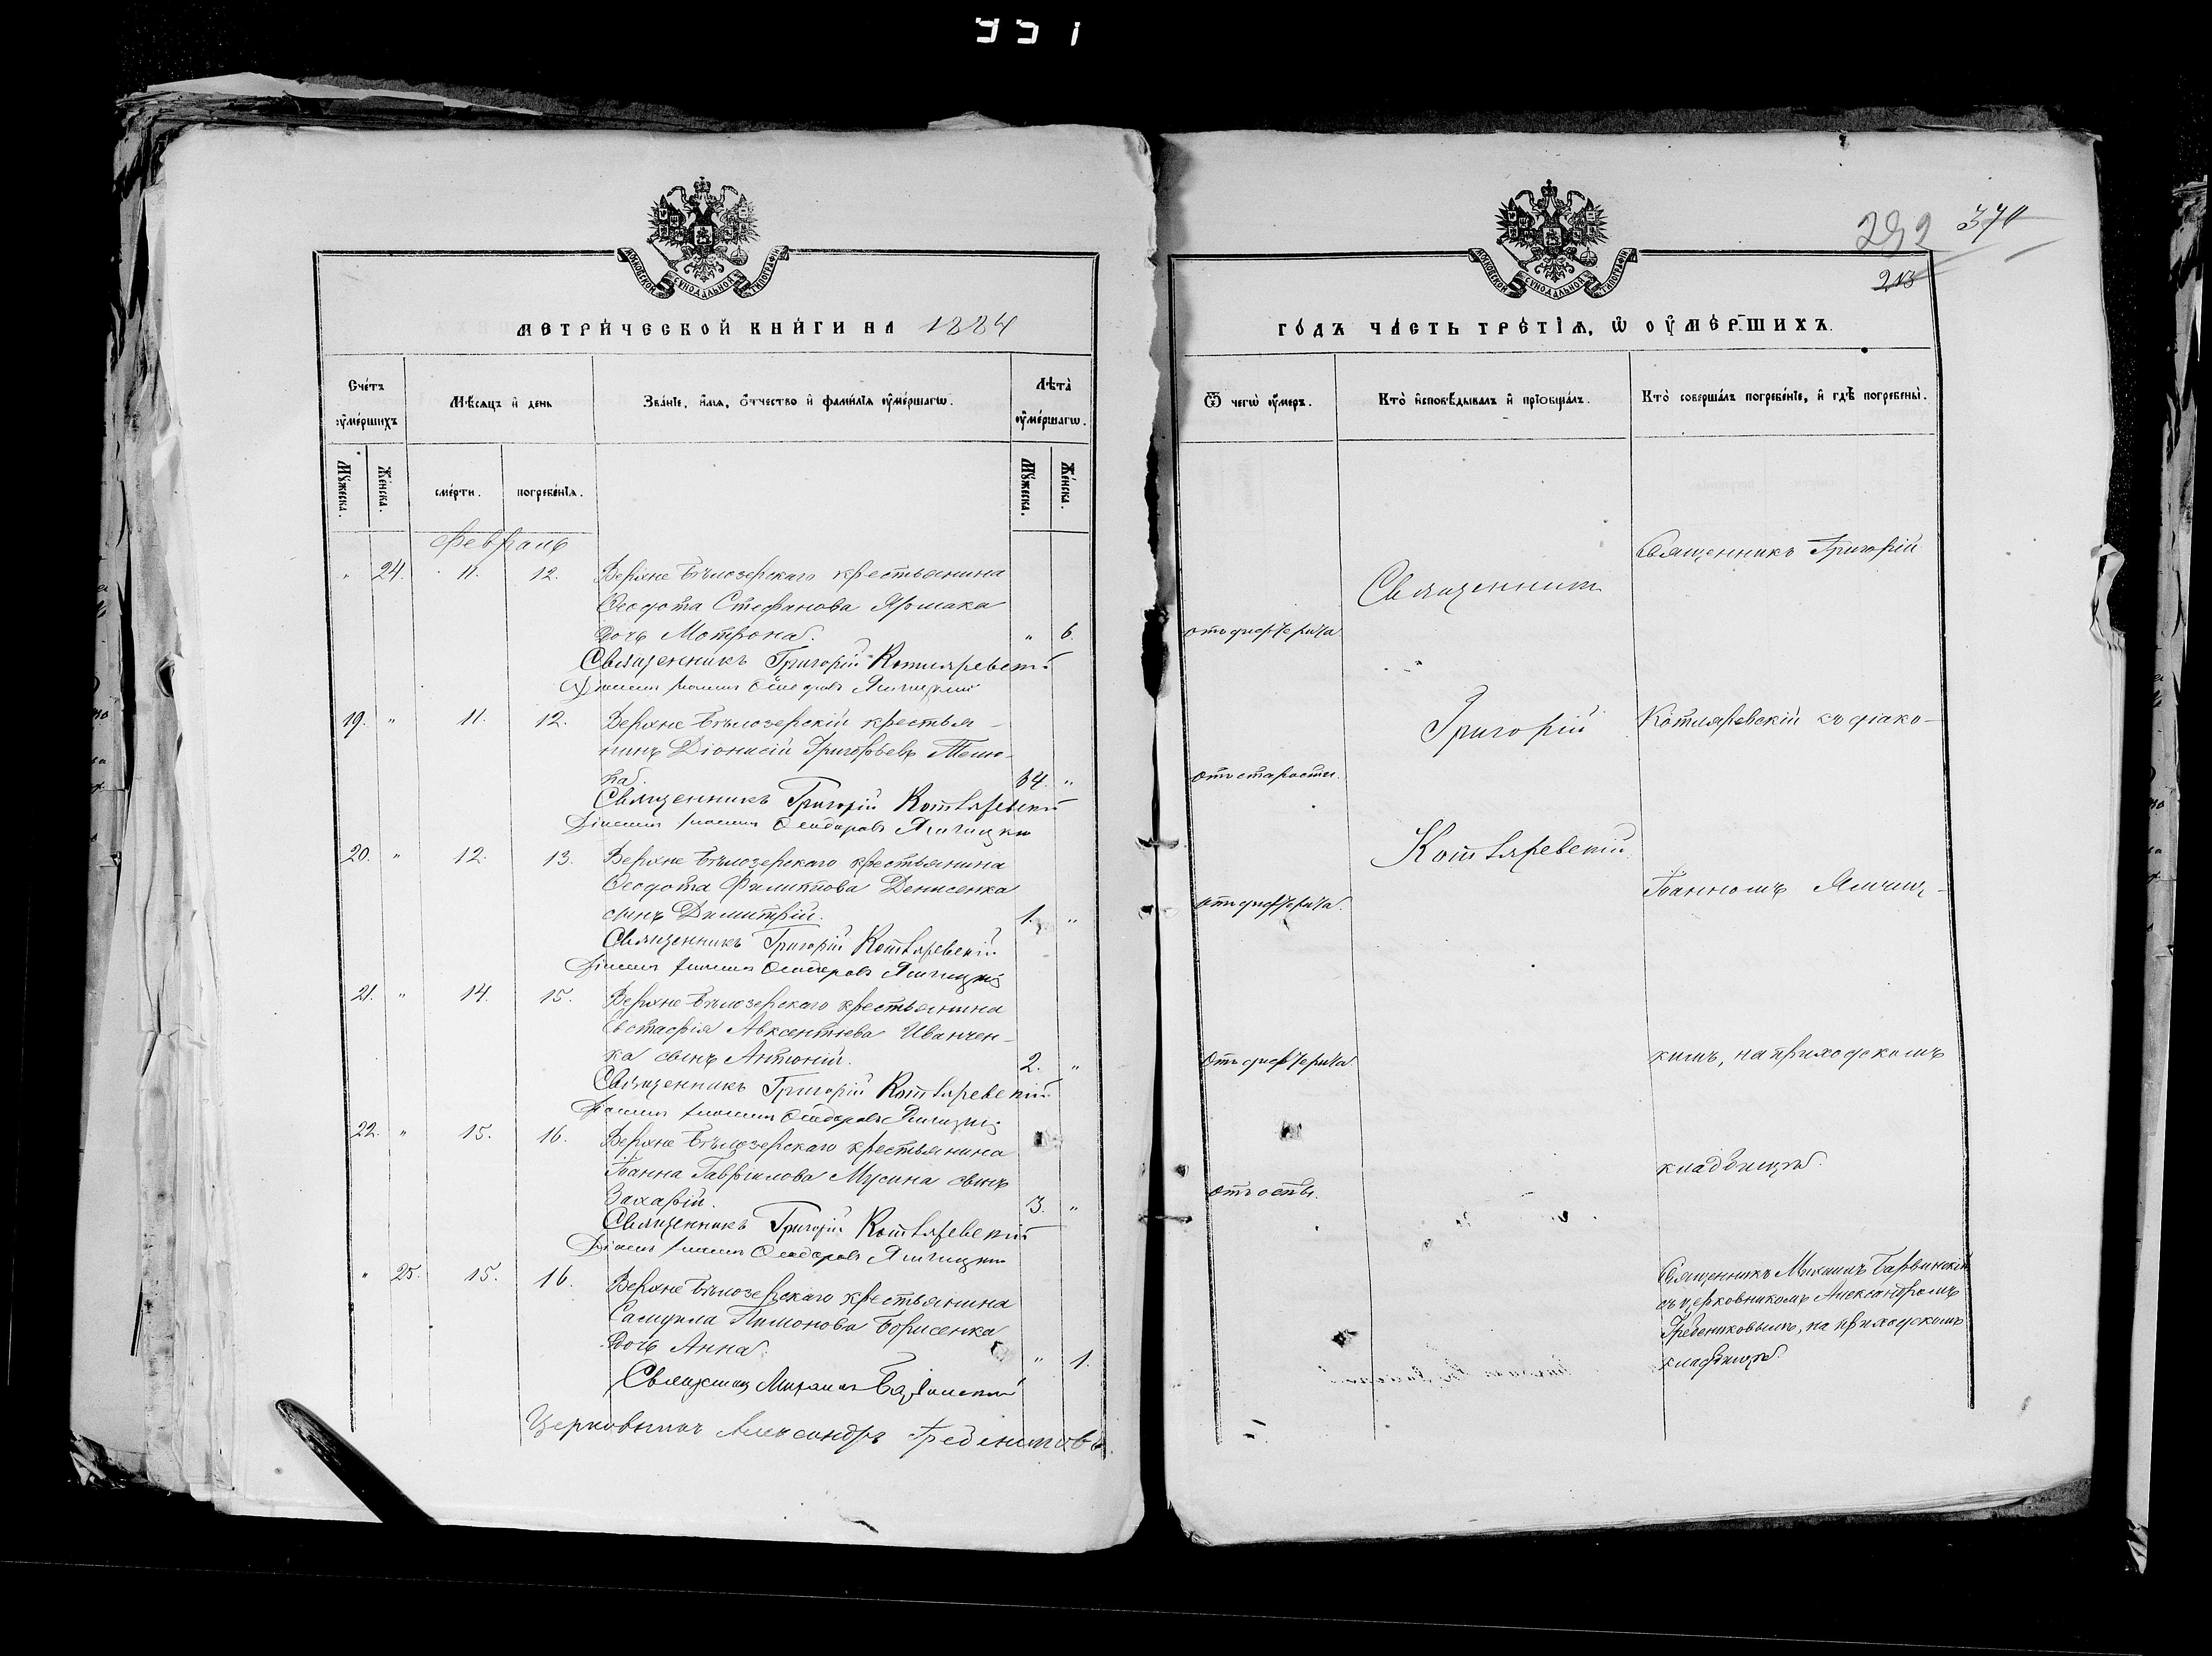 МОСКОВСКОЙ СУНОДАЛЬНОЙ ТИПОГРАФІИ
МЕТРИЧЕСКОЙ КНИГИ НА 1884
Счетъ оумершихъ
Мѣсяцъ и день
Званіе, имя, отчество и фамилія оумершагѡ.
Лѣта оумершагѡ.
Мужеска.
Женска.
смерти.
погребенія.
Мужеска.
Женска.
Февраль
" 24. 11. 12. Верхне Бѣлозерскаго крестьянина
Ѳеодота Стефанова Ярмака
дочь Мотрона. " 6.
Священникъ Григорій Котляревскій
19. " 11. 12. Верхне Бѣлозерскій крестья-
нинъ Діонисій Григорьевъ
"
Священникъ Григорій Котляревскій
20. " 12. 13. Верхне Бѣлозерскаго крестьянина
Ѳеодота Филиппова Денисенка
сынъ Димитрій. 1. "
Священникъ Григорій Котляревскій
21. " 14. 15. Верхне Бѣлозерскаго крестьянина
Евстафія Авксентіева Иванчен-
ка сынъ Антоній. 2. "
Священникъ Григорій Котляревскій
22. " 15. 16. Верхне Бѣлозерскаго крестьянина
Іоанна Гавріилова Мусина сынъ
Захарій. 3. "
Священникъ Григорій Котляревскій
" 25. 15. 16. Верхне Бѣлозерскаго крестьянина
Самуила Пимонова Борисенка
дочь Анна. " 1.
Священникъ Михаилъ
Церковникъ Александръ Гребениковъ.
292 374
213
МОСКОВСКОЙ СУНОДАЛЬНОЙ ТИПОГРАФІИ
ГОДЪ ЧАСТЬ ТРЕТІЯ, Ѡ ОУМЕРШИХЪ.
Ѿ чегѡ оумеръ.
Кто исповѣдывалъ и пріобщалъ.
Кто совершалъ погребеніе, и гдѣ погребены.
Священникъ Григорій
Священникъ
отъ дифтерита
Григорій
Котляревскій съ діако-
отъ старости.
Котляревскій.
Іоанномъ
отъ дифтерита.
отъ дифтерита.
кимъ, на приходскомъ
кладбищѣ.
отъ оспы.
Священникъ Михаилъ
съ церковникомъ Александромъ
Гребениковымъ, на приходскомъ
кладбищѣ.